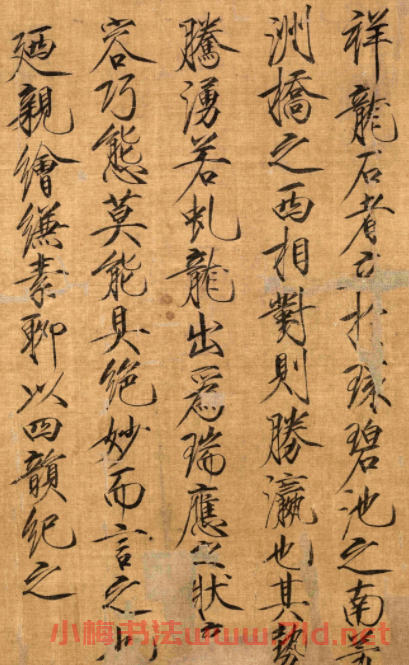 祥龍石者立於環碧池之南芳
洲橋之西相對則勝瀛也其勢
騰湧若虬龍出爲瑞應之狀奇
容巧態莫能具絶妙而言之也
廼親繪縑素聊以四韻紀之
小梅书法www.7ld.net